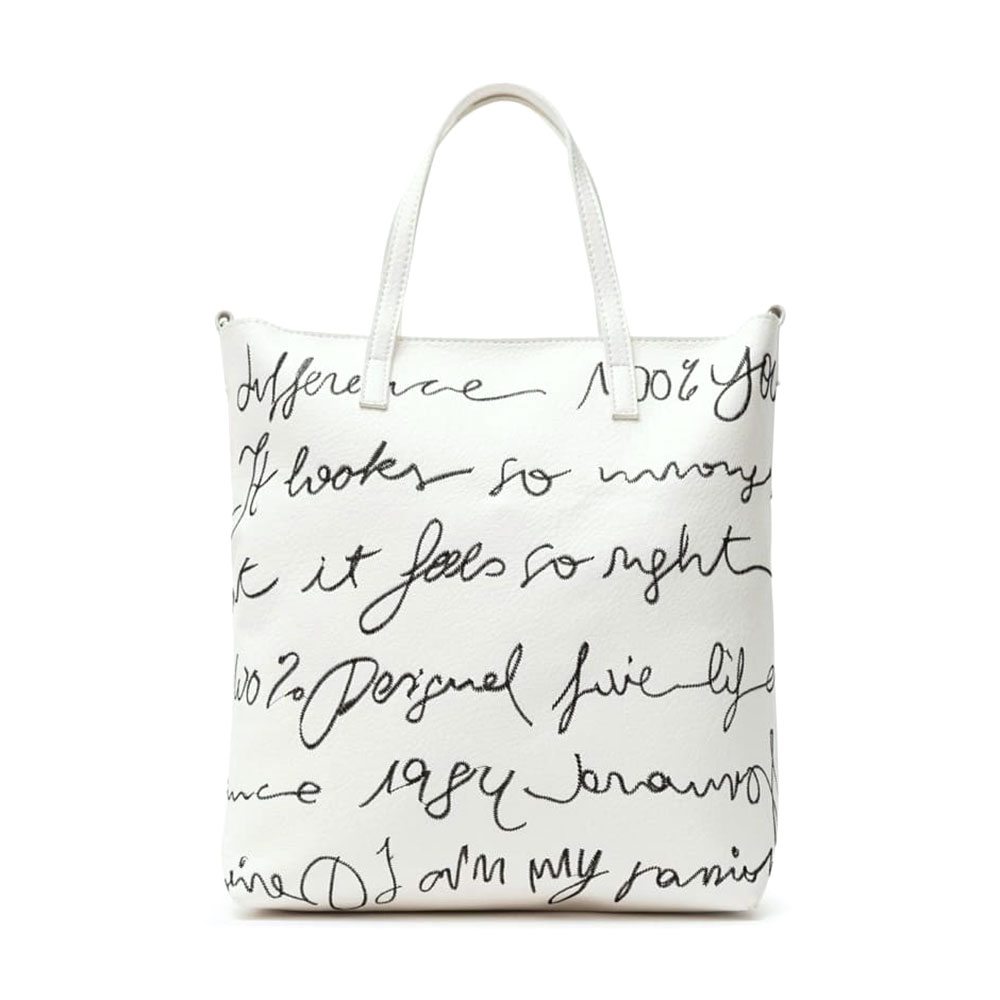 difference 100% you
It looks so wrong
t it feels so right
00% Designed fine life
ince 1984
I am my passion